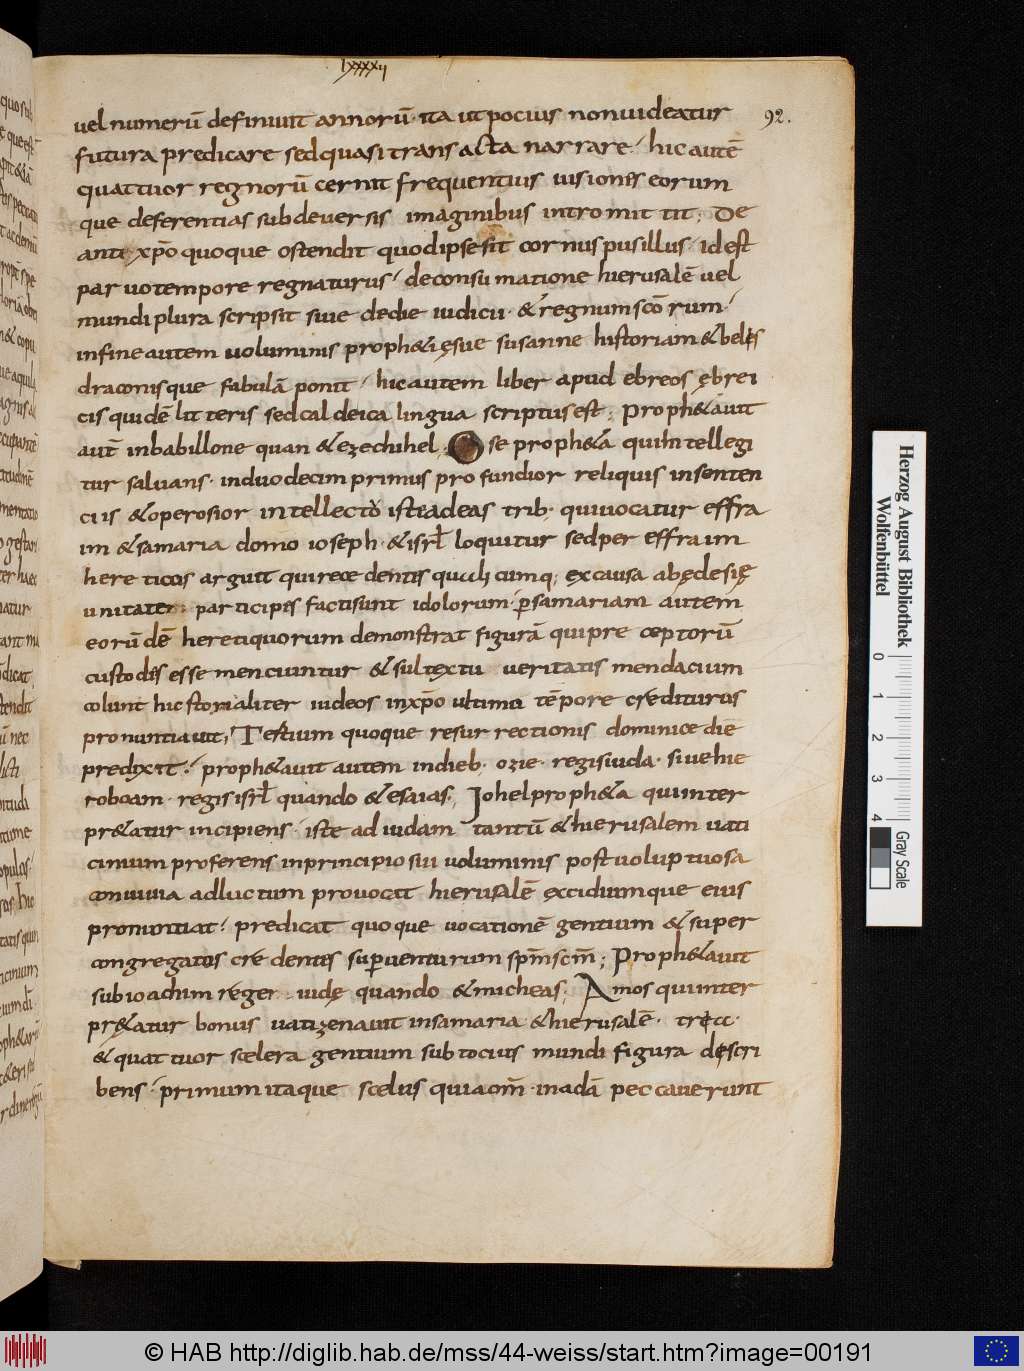 lxxxxii
92.
uel numerū definiuit annorū· ita ut pocius non uideatur
futura predicare sed quasi transacta narrare· hic autē
quattuor regnorū cernit frequentius uisiones eorum
que deferentias sub deuersis imaginibus intromittit; De
ante xpō quoque ostendit quod ipse sit cornus pusillus· id est
paruo tempore regnaturus· de consumatione hierusalē uel
mundi plura scripsit siue de die iudicii· & regnum scōrum·
in fine autem uoluminis proph&ięsue susanne historiam & belis
draconisque fabulā ponit· hic autem liber apud ebreos ębrei
cis quidē litteris sed caldeica lingua scriptus est; Proph&auit
aut̄ in babillone quan & ezechihel; Ose proph&a qui intellegi
tur saluans· in duodecim primus profundior reliquis in senten
ciis & operosior in intellecto iste ad eas trib· qui uocatur effra
im & samaria domo ioseph· & isrl̄ loquitur sed per effraim
hereticos arguit qui recedentes quali cumq; ex causa ab ęclesię
unitate participes facti sunt idolorum· p samariam autem
eorūdē heretiquorum demonstrat figurā qui preceptorū
custodes esse menciuntur & sub textu ueritatis mendacium
colunt hic storialiter iudeos in xp̄o ultima tēpore credituros
pronuntiauit, Testium quoque resurrectionis dominice diē
predixit· proph&auit autem in dieb· ozie· regis iuda· siue hie
roboam· regis isrl̄ quando & esaias; Johel proph&a qui inter
pr&atur incipiens· iste ad iudam tantū & hierusalem uati
cinium proferens in principio sui uoluminis post uoluptuosa
conuiuia ad luctum prouocat hierusalē excidiumque eius
pronuntiat· predicat quoque uocationē gentium & super
congregatos credentes superuenturum spm̄ scm̄; Proph&auit
sub ioachim rege iudę quando & micheas; Amos qui inter
pr&atur bonus uatizenauit in samaria & hierusalē· trecc·
& quattuor scelera gentium sub tocius mundi figura descri
bens· primum itaque scelus quia om̄· in adā peccauerunt
Herzog August Bibliothek
Wolfenbüttel
0 1 2 3 4
Gray Scale
© HAB http://diglib.hab.de/mss/44-weiss/start.htm?image=00191